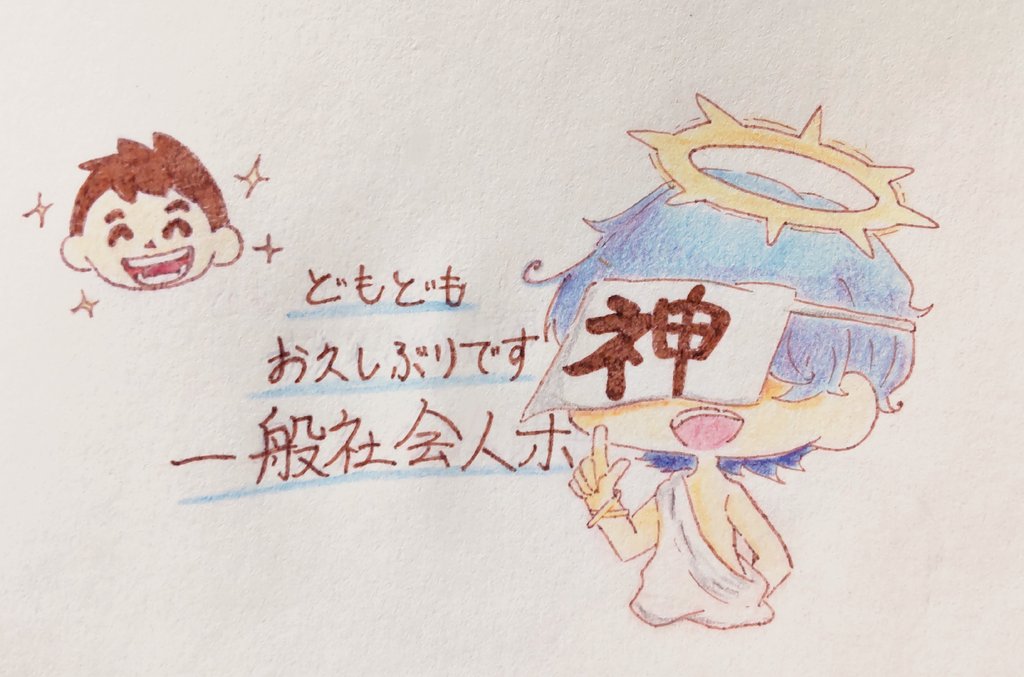 どもども
お久しぶりです
一般社会人ホ
神